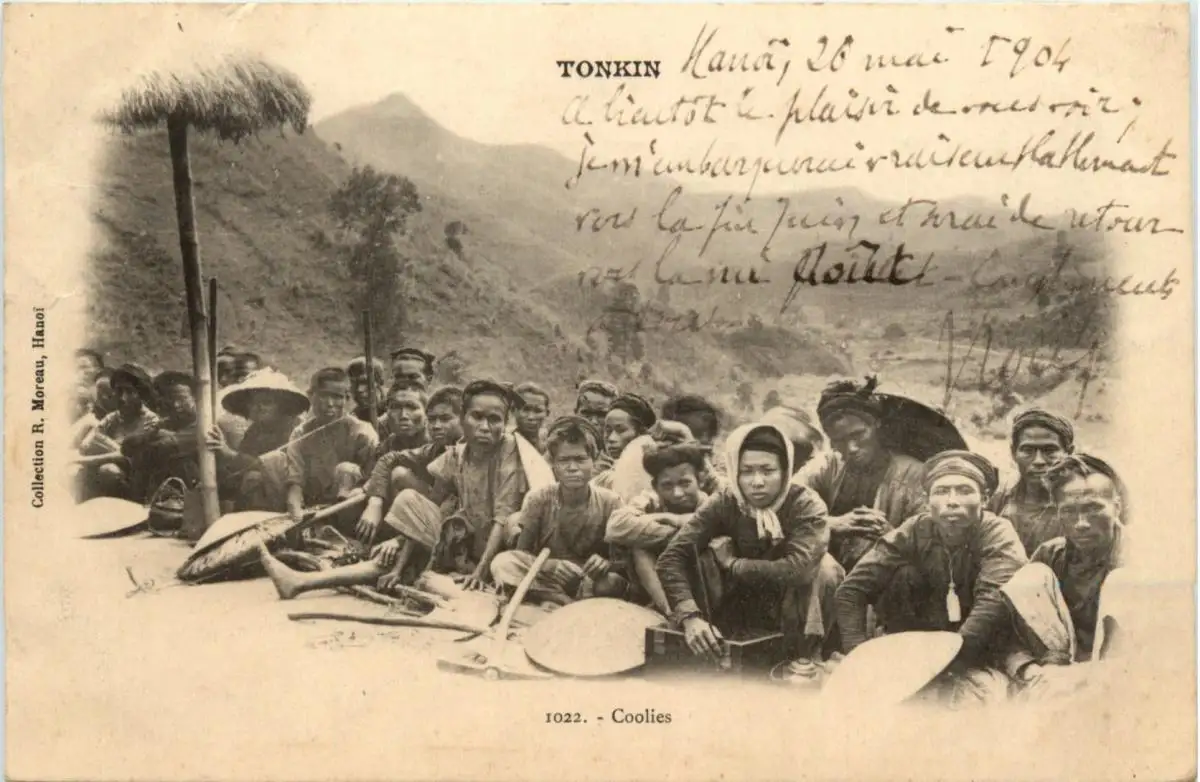 TONKIN
Hanoï, 26 mai 1904
A bientôt le plaisir de vous voir;
je m'embarquerai vraisemblablement
vers la fin Juin et serai de retour
vers la mi Août - Compliments
Collection R. Moreau, Hanoï
1022. - Coolies